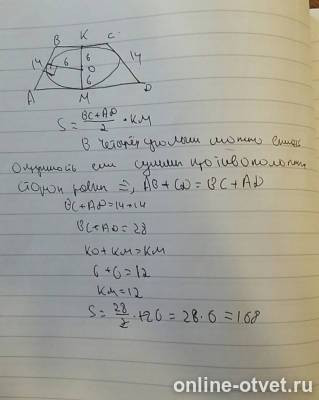 B K C
14 6 6 O 14
6
A M D
S = BC+AD/2 · KM
В четырёхугольник можно вписать
Окружность если суммы противоположн
сторон равны ⇒, AB + CD = BC + AD
BC + AD = 14 + 14
BC + AD = 28
KO + KM = KM
6 + 6 = 12
KM = 12
S = 28/2 · 12 6 = 28 · 6 = 168
online-otvet.ru